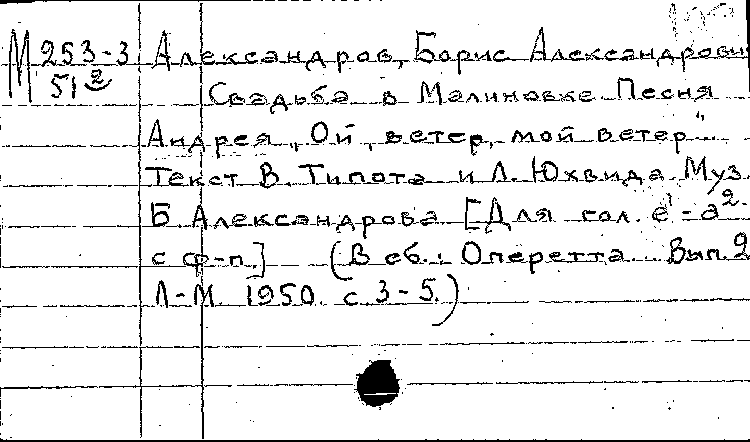 М 253-3
51²
Александров, Борис Александрович
Свадьба в Малиновке. Песня
Андрея „Ой, ветер, мой ветер"
Текст В. Типота и Л. Юхвида. Муз.
Б. Александрова [Для гол. e¹-a²
с ф-п.] (В сб.: Оперетта. Вып. 2
Л-М. 1950. с. 3-5.)